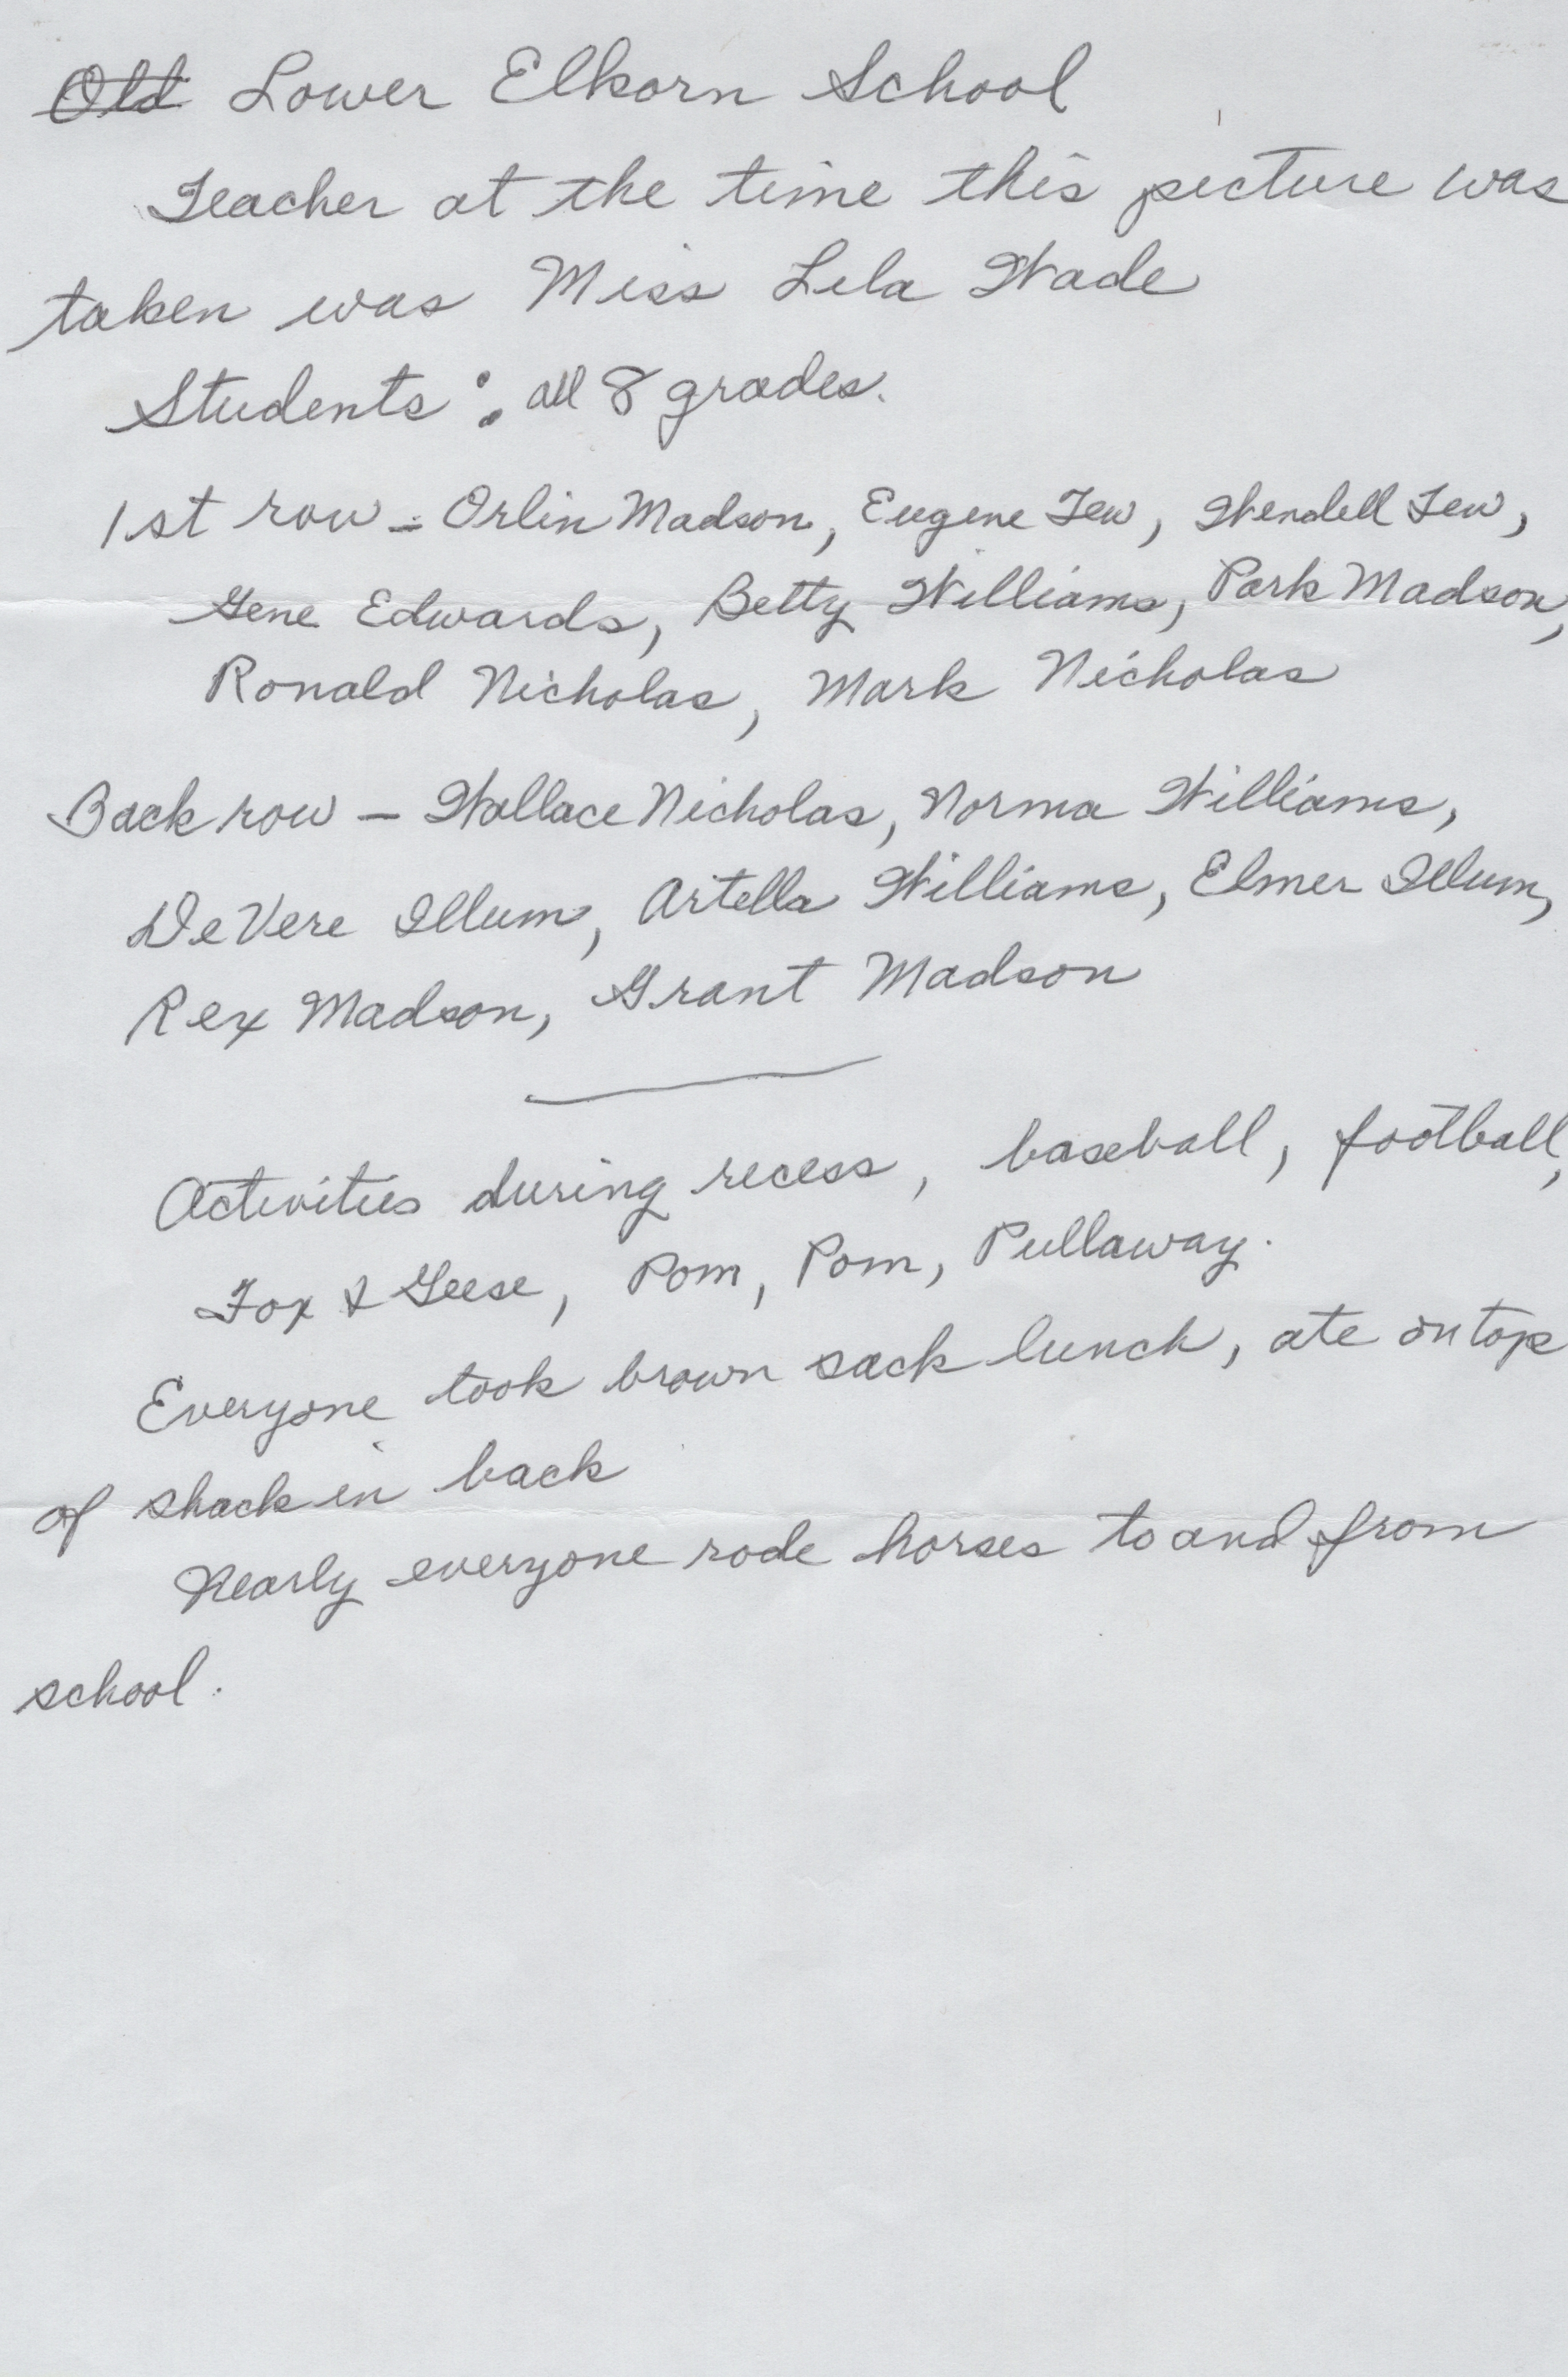 Old Lower Elkorn School
Teacher at the time this picture was
taken was Miss Lela Wade
Students: all 8 grades.
1st row - Orlin Madson, Eugene Tew, Wendell Tew,
Gene Edwards, Betty Williams, Park Madson,
Ronald Nicholas, Mark Nicholas
Back row - Wallace Nicholas, Norma Williams,
DeVere Illum, Artella Williams, Elmer Illum,
Rex Madson, Grant Madson
Activities during recess, baseball, football,
Fox & Geese, Pom, Pom, Pullaway.
Everyone took brown sack lunch, ate on top
of shack in back
Nearly everyone rode horses to and from
school.